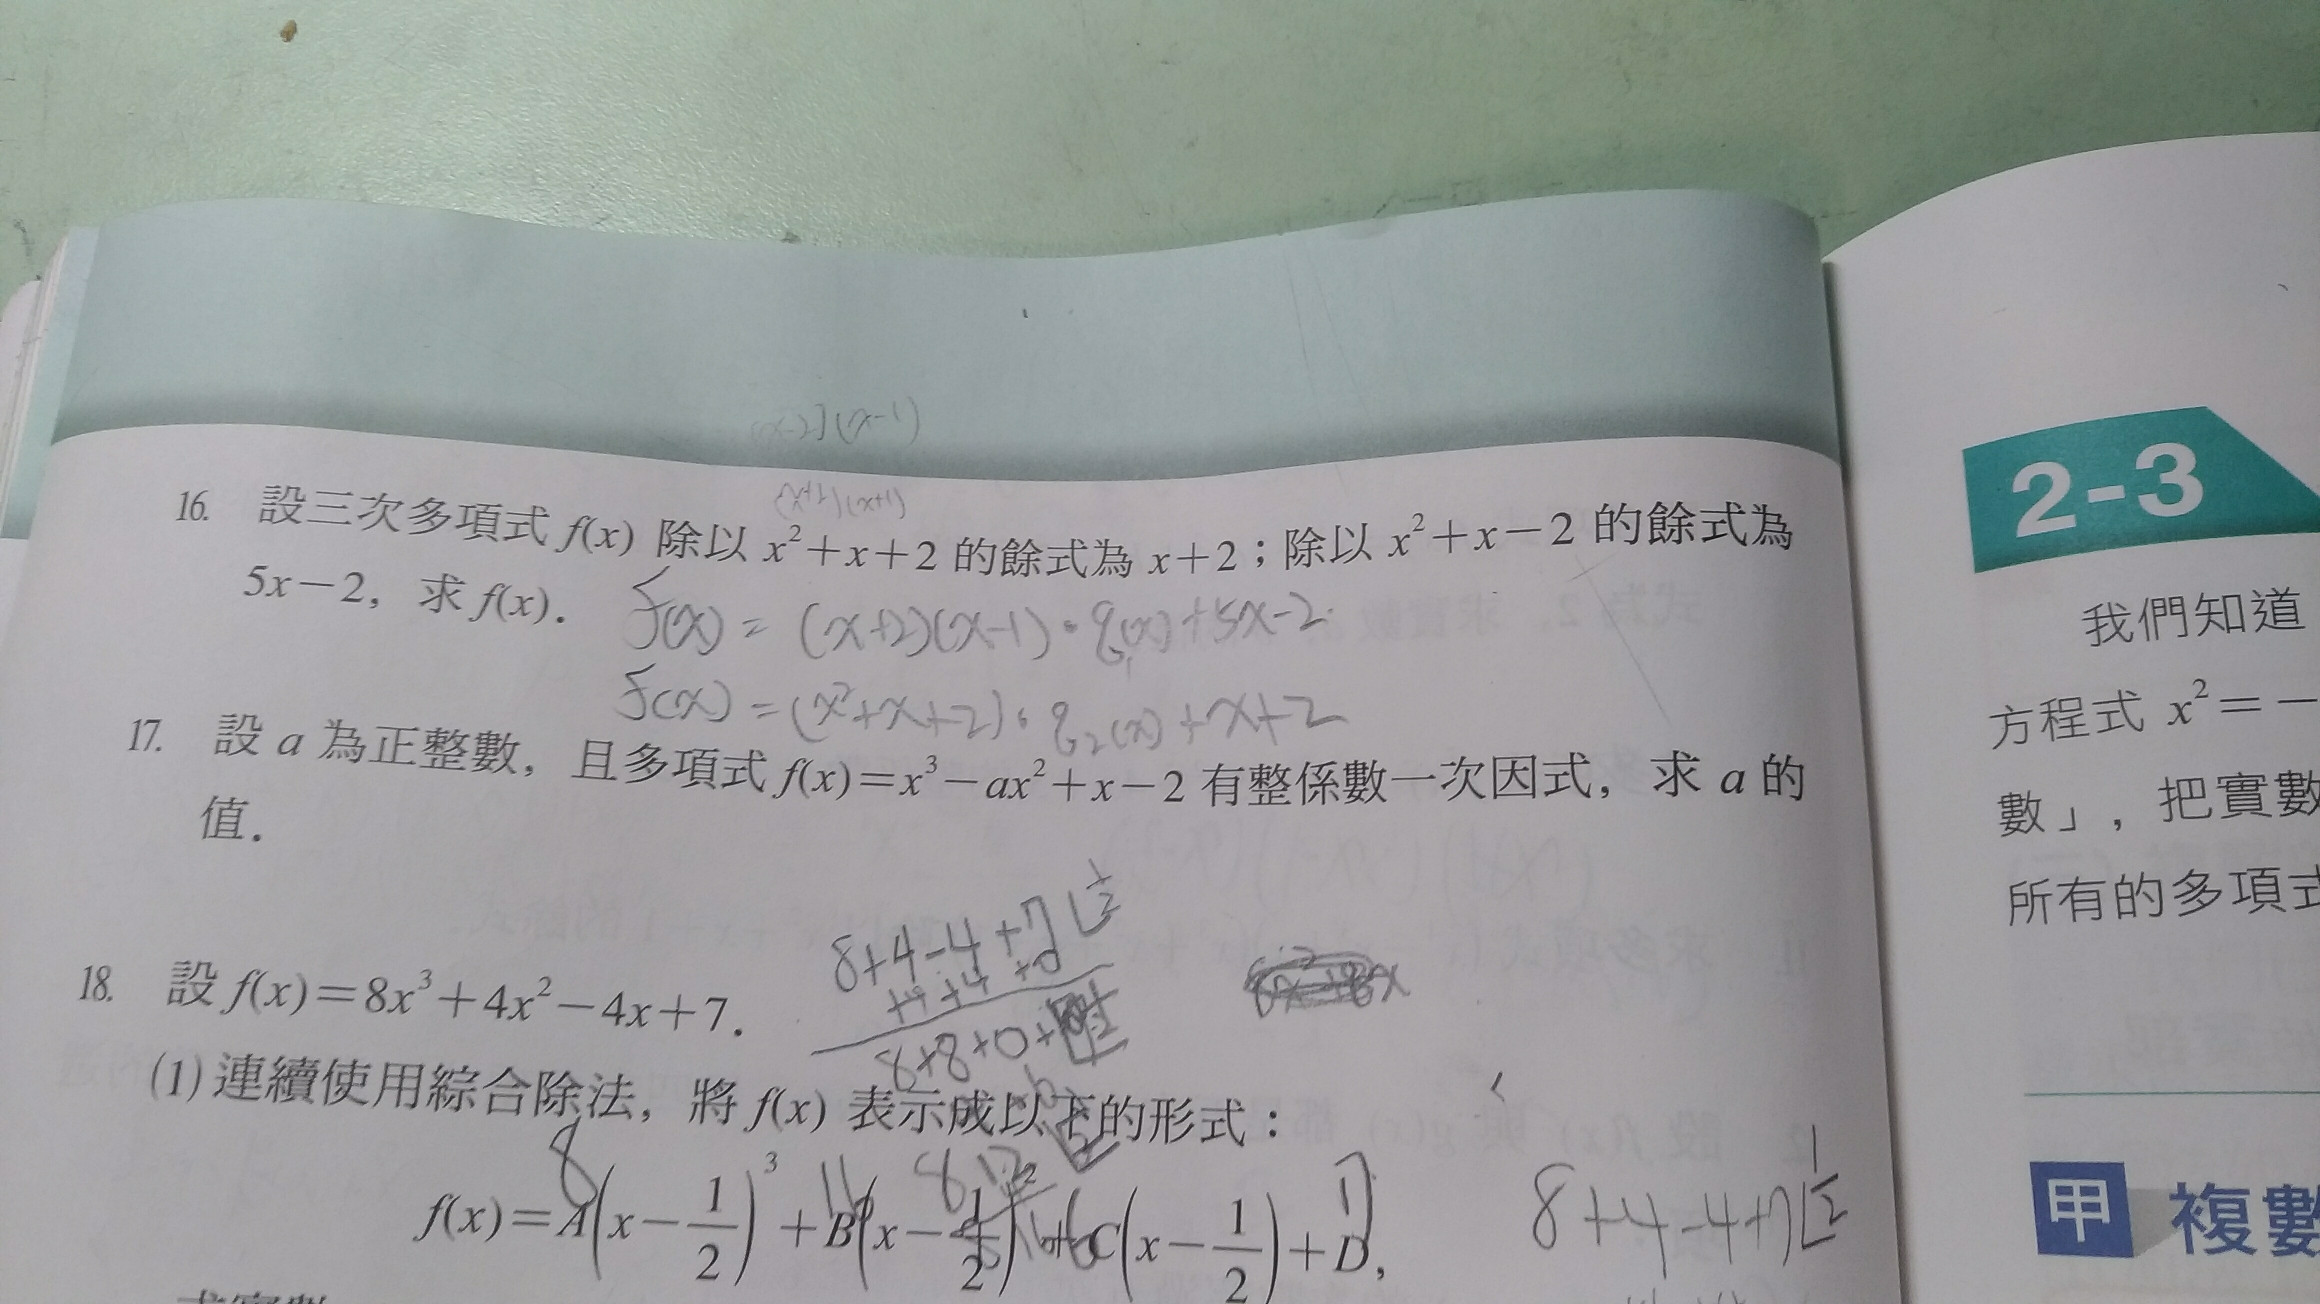 (x-2)(x-1)
(x+2)(x+1)
16. 設三次多項式 f(x) 除以 x²+x+2 的餘式為 x+2；除以 x²+x-2 的餘式為
5x-2，求 f(x).
f(x) = (x+2)(x-1)·q₁(x)+5x-2
f(x) = (x²+x+2)·q₂(x)+x+2
17. 設 a 為正整數，且多項式 f(x)=x³-ax²+x-2 有整係數一次因式，求 a 的
值.
8+4-4+7 1/2
+4+4+0
8+8+0+
18. 設 f(x)=8x³+4x²-4x+7.
(1) 連續使用綜合除法，將 f(x) 表示成以下的形式：
8 7
f(x)=A(x-1/2)³+B(x-1/2)²+C(x-1/2)+D,
8+4-4+7 1/2
2-3
我們知道
方程式 x²=-
數」，把實數
所有的多項式
甲 複數